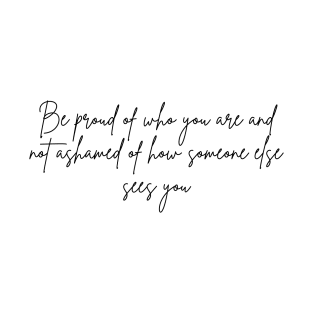 Be proud of who you are and
not ashamed of how someone else
sees you